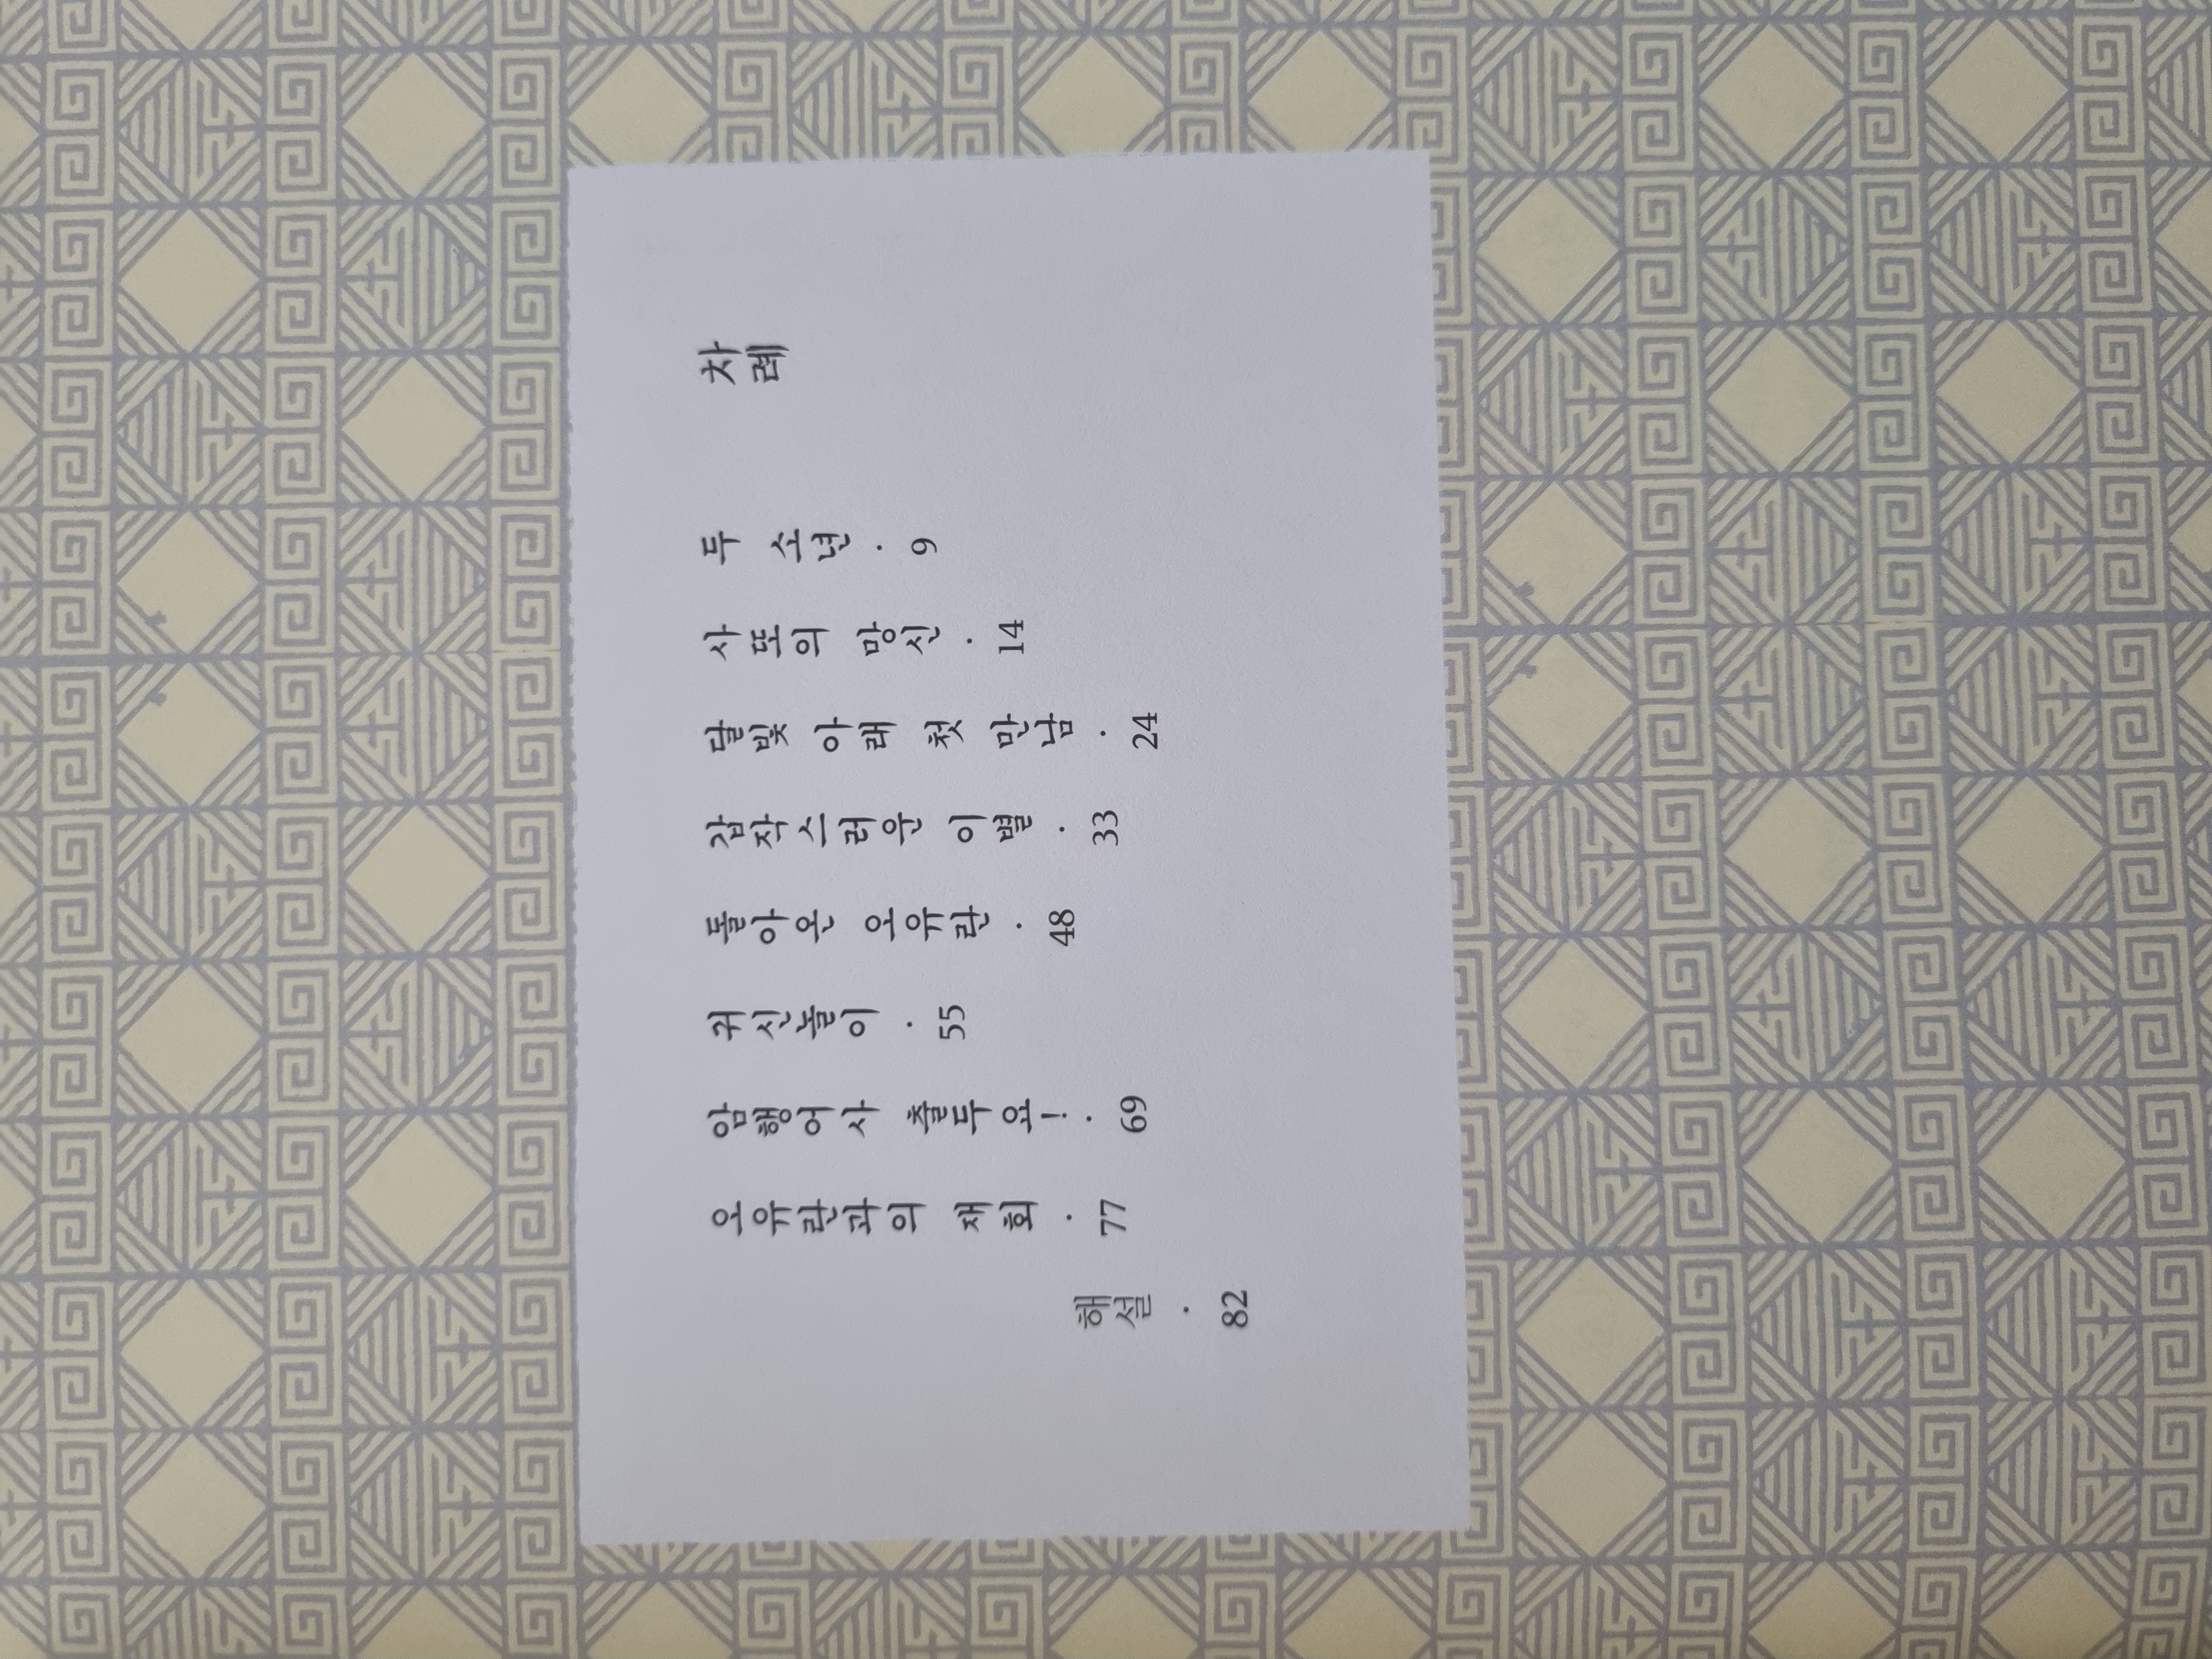 차례
두 소년 · 9
사또의 망신 · 14
달빛 아래 첫 만남 · 24
갑작스러운 이별 · 33
돌아온 오유란 · 48
귀신놀이 · 55
암행어사 출두요! · 69
오유란과의 재회 · 77
해설 · 82